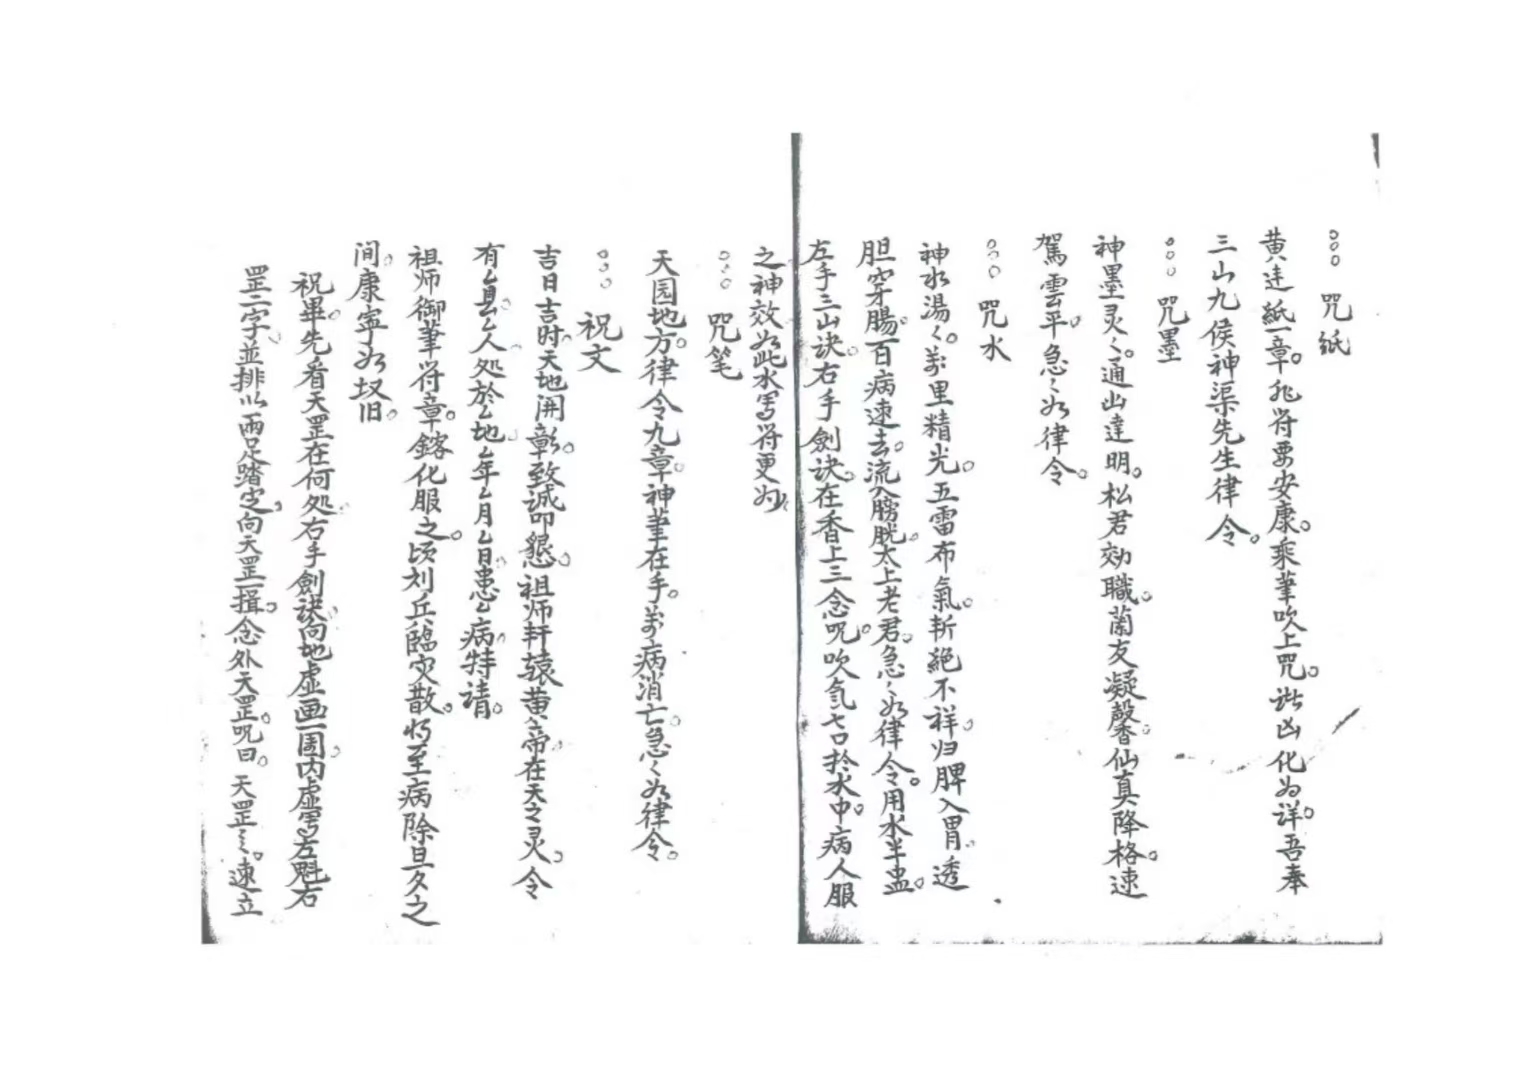 咒纸
黄迳紙一章。飛符要安康。乘筆吹上咒。諸凶化为详。吾奉
三山九侯神渠先生律令。
咒墨
神墨灵〻。通幽達明。松君効職。蘭友凝馨。仙真降格。速
駕雲平。急〻如律令。
咒水
神水湯〻。萬里精光。五雷布氣。斬絕不祥。归脾入胃。透
胆穿腸。百病速去。流入膀胱。太上老君。急〻如律令。用水半盅。
左手三山诀。右手劍诀。在香上三念咒。吹气七口扵水中。病人服
之神效。如此水写符更妙。
咒笔
天园地方。律令九章。神筆在手。萬病消亡。急〻如律令。
祝文
吉日吉时。天地開彰。致诚叩懇。祖师軒辕黄帝。在天之灵。令
有厶县。厶人处於厶地。厶年厶月厶日。患厶病。特请。
祖师御筆符章。鎔化服之。顷刻兵臨灾散。將至病除。旦夕之
间。康寧如故旧。
祝畢。先看天罡在何处。右手劍诀。向地虚画一圈。内虚写左魁右
罡二字。並排以兩足踏定。向天罡一揖。念外天罡。咒曰。天罡〻。速立